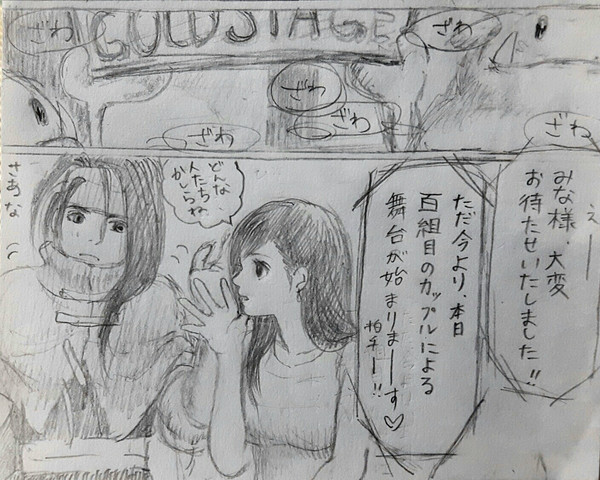 GOLDSTAGE
ざわ
ざわ
ざわ
ざわ
ざわ
ざわ
えーー
みな様、大変
お待たせいたしました!!
ただ今より、本日
百組目のカップルによる
舞台が始まりまーーす♡
拍手ー!!
どんな
人たち
かしらね
さあな